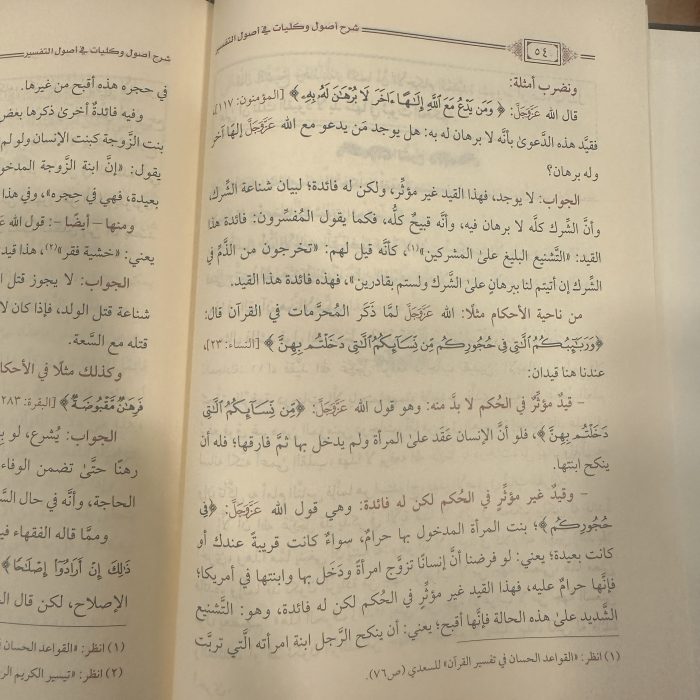 شرح أصول وكليات في أصول التفسير
٥٤
ونضرب أمثلة:
قال الله عَزَّوَجَلَّ: ﴿وَمَن يَدْعُ مَعَ ٱللَّهِ إِلَٰهًا ءَاخَرَ لَا بُرْهَٰنَ لَهُۥ بِهِۦ﴾ [المؤمنون: ١١٧]،
فقيَّد هذه الدَّعوىٰ بأنَّه لا برهان له به: هل يوجد مَن يدعو مع الله عَزَّوَجَلَّ إلهًا آخر
وله برهان؟
الجواب: لا يوجد، فهذا القيد غير مؤثِّر، ولكن له فائدة؛ لبيان شناعة الشِّرك،
وأنَّ الشِّرك كلَّه لا برهان فيه، وأنَّه قبيحٌ كلُّه، فكما يقول المُفسِّرون: فائدة هذا
القيد: «التَّشنيع البليغ علىٰ المشركين»(١)، كأنَّه قيل لهم: «تخرجون من الذَّمِّ في
الشِّرك إن أتيتم لنا ببرهانٍ علىٰ الشِّرك ولستم بقادرين»، فهذه فائدة هذا القيد.
من ناحية الأحكام مثلًا: الله عَزَّوَجَلَّ لمَّا ذَكَر المُحرَّمات في القرآن قال:
﴿وَرَبَٰٓئِبُكُمُ ٱلَّٰتِي فِي حُجُورِكُم مِّن نِّسَآئِكُمُ ٱلَّٰتِي دَخَلْتُم بِهِنَّ﴾ [النساء: ٢٣]،
عندنا هنا قيدان:
- قيدٌ مؤثِّرٌ في الحُكم لا بدَّ منه: وهو قول الله عَزَّوَجَلَّ: ﴿مِّن نِّسَآئِكُمُ ٱلَّٰتِي
دَخَلْتُم بِهِنَّ﴾، فلو أنَّ الإنسان عَقَد علىٰ المرأة ولم يدخل بها ثمَّ فارقها؛ فله أن
ينكح ابنتها.
- وقيدٌ غير مؤثِّرٍ في الحُكم لكن له فائدة: وهي قول الله عَزَّوَجَلَّ: ﴿فِي
حُجُورِكُم﴾؛ بنت المرأة المدخول بها حرامٌ، سواءٌ كانت قريبةً عندك أو
كانت بعيدة؛ يعني: لو فرضنا أنَّ إنسانًا تزوَّج امرأةً ودَخَل بها وابنتها في أمريكا؛
فإنَّها حرامٌ عليه، فهذا القيد غير مؤثِّرٍ في الحُكم لكن له فائدة، وهو: التَّشنيع
الشَّديد علىٰ هذه الحالة فإنَّها أقبح؛ يعني: أن ينكح الرَّجل ابنة امرأته الَّتي تربَّت
(١) انظر: «القواعد الحسان في تفسير القرآن» للسعدي (ص٧٦).
شرح أصول وكليات في أصول التفسير
في حجره هذه أقبح من غيرها.
وفيه فائدةٌ أخرىٰ ذكرها بعض
بنت الزَّوجة كبنت الإنسان ولو لم
يقول: «إنَّ ابنة الزَّوجة المدخو
بعيدة، فهي في حِجره»، وفي هذا
ومنها - أيضًا -: قول الله
يعني: «خشية فقر»(٢)، هذا قيد
الجواب: لا يجوز قتل
شناعة قتل الولد، فإذا كان لا
قتله مع السَّعة.
وكذلك مثلًا في الأحكا
فَرِهَٰنٌ مَّقْبُوضَةٌ﴾ [البقرة: ٢٨٣
الجواب: يُشرع، لو
رهنًا حتَّىٰ تضمن الوفاء
الحاجة، وأنَّه في حال
وممَّا قاله الفقهاء
ذَٰلِكَ إِنْ أَرَادُوٓا۟ إِصْلَٰحًا﴾
الإصلاح، لكن قال
(١) انظر: «القواعد الحسان
(٢) انظر: «تيسير الكريم